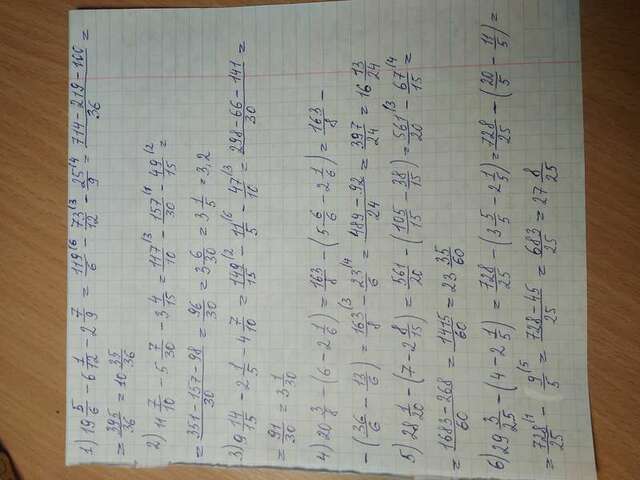 1) 19 5/6 - 6 1/12 - 2 7/9 = 119/6 (6 - 73/12 (3 - 25/9 (4 = (714 - 219 - 100)/36 =
= 395/36 = 10 35/36
2) 11 7/10 - 5 7/30 - 3 4/15 = 117/10 (3 - 157/30 (1 - 49/15 (2
= (351 - 157 - 98)/30 = 96/30 = 3 6/30 = 3 1/5 = 3,2
3) 9 14/15 - 2 1/5 - 4 7/10 = 149/15 (2 - 11/5 (6 - 47/10 (3 = (298 - 66 - 141)/30 =
= 91/30 = 3 1/30
4) 20 3/8 - (6 - 2 1/6) = 163/8 - (5 6/6 - 2 1/6) = 163/8 -
- (36/6 - 13/6) = 163/8 (3 - 23/6 (4 = (489 - 92)/24 = 397/24 = 16 13/24
5) 28 1/20 - (7 - 2 8/15) = 561/20 - (105/15 - 38/15) = 561/20 (3 - 67/15 (4 =
= (1683 - 268)/60 = 1415/60 = 23 35/60
6) 29 3/25 - (4 - 2 1/5) = 728/25 - (3 5/5 - 2 1/5) = 728/25 - (20/5 - 11/5) =
= 728/25 (1 - 9/5 (5 = (728 - 45)/25 = 683/25 = 27 8/25